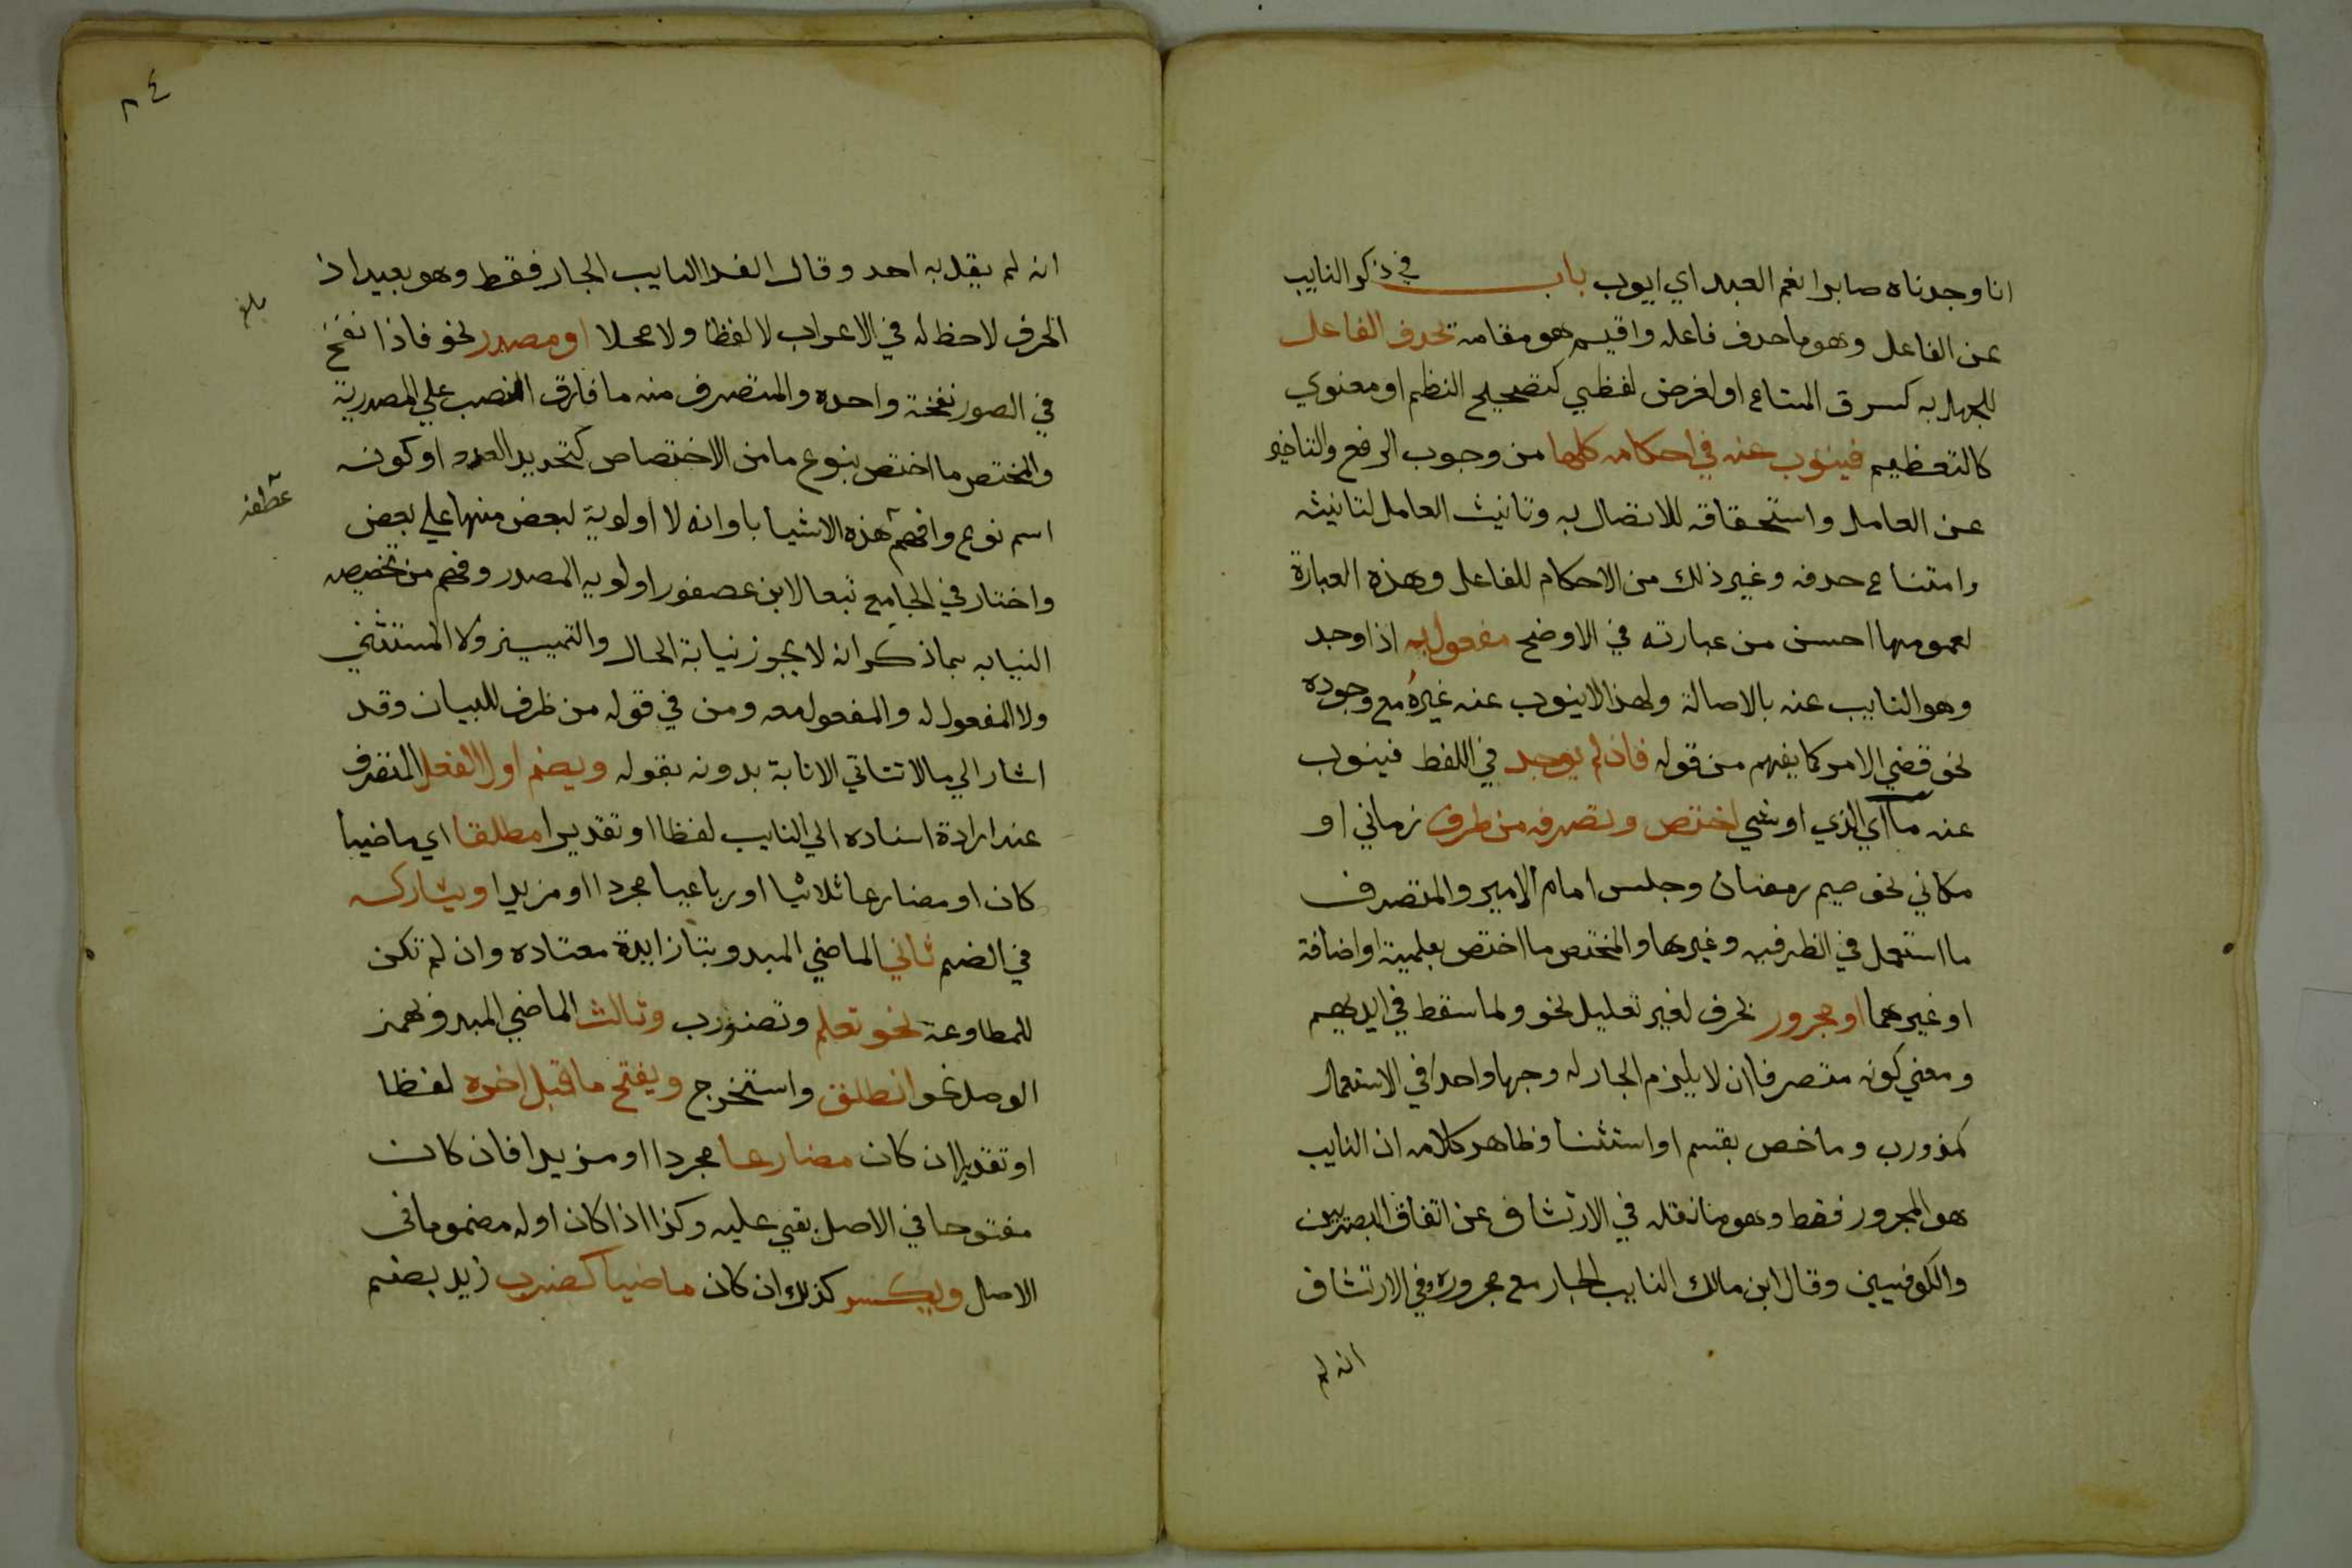 انا وجدناه صابرا نعم العبد اي ايوب باب في ذكر النايب
عن الفاعل وهو ما حذف فاعله واقيم هو مقامه يحذف الفاعل
للجهل به كسرق المتاع او لغرض لفظي كتصحيح النظم او معنوي
كالتعظيم فينوب عنه في احكامه كلها من وجوب الرفع والتاخير
عن العامل واستحقاقه للاتصال به وتانيث العامل لتانيثه
وامتناع حذفه وغير ذلك من الاحكام للفاعل وهذه العبارة
لعمومها احسن من عبارته في الاوضح مفعول به اذا وجد
وهو النايب عنه بالاصالة ولهذا لا ينوب عنه غيره مع وجوده
نحو قضي الامر كما يفهم من قوله فان لم يوجد في اللفظ فينوب
عنه ما اي الذي او شي اختص وتصرف من ظرف زماني او
مكاني نحو صيم رمضان وجلس امام الامير والمتصرف
ما استعمل في الظرفيه وغيرها والمختص ما اختص بعلمية او اضافة
او غيرهما او مجرور بحرف لغير تعليل نحو ولما سقط في ايديهم
ومعني كونه متصرفا ان لا يلزم الجار له وجها واحدا في الاستعمال
كمذ ورب وما خص بقسم او استثنا وظاهر كلامه ان النايب
هو المجرور فقط وهو ما نقله في الارتشاف عن اتفاق البصريين
والكوفيين وقال ابن مالك النايب الجار مع مجروره وفي الارتشاف
انه لم
٢٤
انه لم يقل به احد وقال الفرا النايب الجار فقط وهو بعيد اذ
الحرف لا حظ له في الاعراب لا لفظا ولا محلا او مصدر نحو فاذا نفخ
بلغ
في الصور نفخة واحده والمتصرف منه ما فارق النصب علي المصدرية
والمختص ما اختص بنوع ما من الاختصاص كتحديد العدد او كونه
عطفه
اسم نوع وافهم هذه الاشيا باو انه لا اولوية لبعض منها علي بعض
واختار في الجامع تبعا لابن عصفور اولويه المصدر وفهم من تخصيصه
النيابه بما ذكر انه لا يجوز نيابة الحال والتمييز ولا المستثني
ولا المفعول له والمفعول معه ومن في قوله من ظرف للبيان وقد
اشار الي ما لا تتاتي الانابة بدونه بقوله ويضم اول الفعل المتصرف
عند ارادة اسناده الي النايب لفظا او تقديرا مطلقا اي ماضيا
كان او مضارعا ثلاثيا او رباعيا مجردا او مزيدا ويشاركه
في الضم ثاني الماضي المبدو بتا زايدة معتاده وان لم تكن
للمطاوعة نحو تعلم وتضورب وثالث الماضي المبدو بهمز
الوصل نحو انطلق واستخرج ويفتح ما قبل اخره لفظا
او تقديرا ان كان مضارعا مجردا او مزيدا فان كان
مفتوحا في الاصل بقي عليه وكذا اذا كان اوله مضموما في
الاصل ويكسر كذلك ان كان ماضيا كضرب زيد بضم